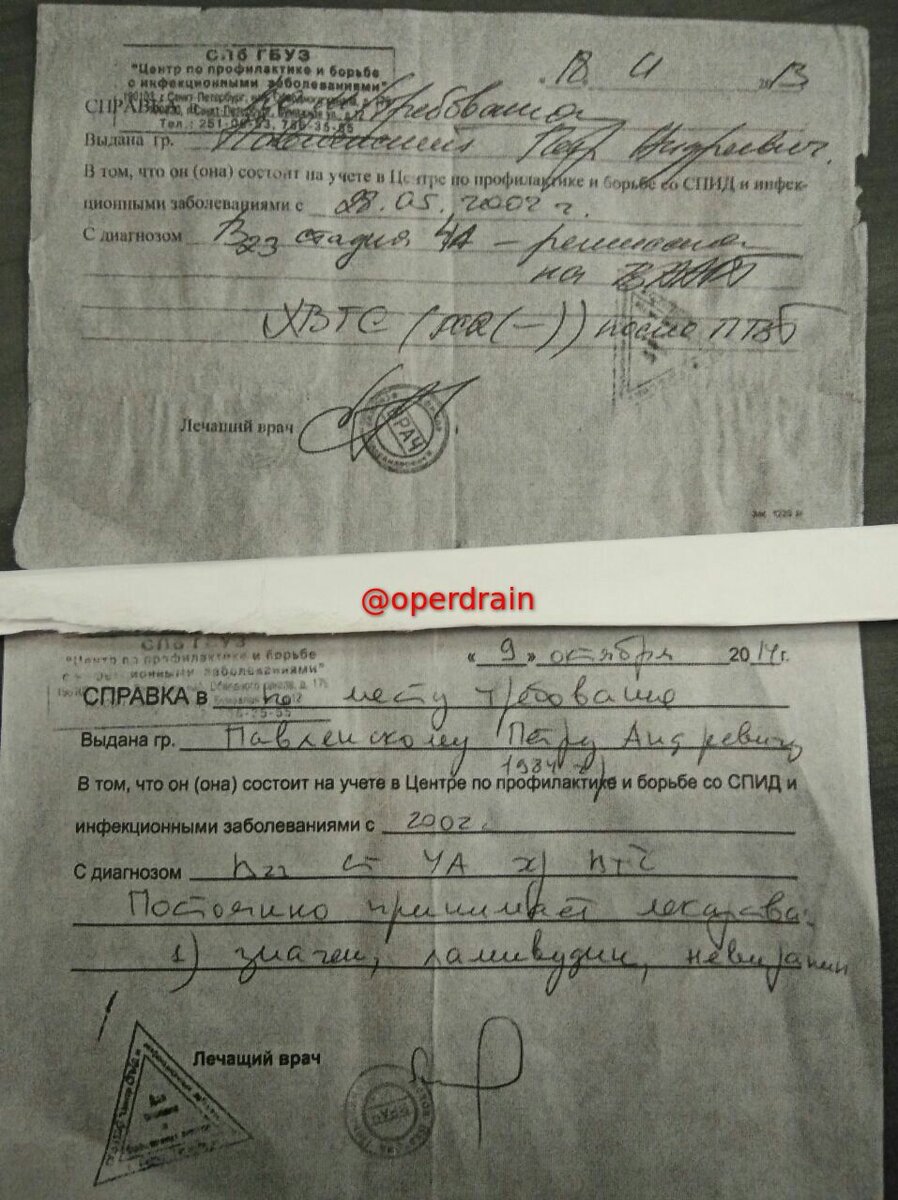 СПб ГБУЗ
"Центр по профилактике и борьбе
с инфекционными заболеваниями"
18 2013
СПРАВКА требования
Выдана гр. Петр Андреевич.
В том, что он (она) состоит на учете в Центре по профилактике и борьбе со СПИД и инфек-
ционными заболеваниями с 28.05.2002 г.
С диагнозом B23 стадия 4А – ремиссия
на ВААРТ
ХВГС после ПТВ
Лечащий врач
ВРАЧ
@operdrain
СПб ГБУЗ
"Центр по профилактике и борьбе
с инфекционными заболеваниями"
« 9 » октября 2014 г.
СПРАВКА в по месту требование
Выдана гр. Павленскому Петру Андреевичу
1984 г
В том, что он (она) состоит на учете в Центре по профилактике и борьбе со СПИД и
инфекционными заболеваниями с 2002г.
С диагнозом ст 4А
Постоянно принимает лекарства:
1) зиаген, ламивудин, невирапин
Лечащий врач